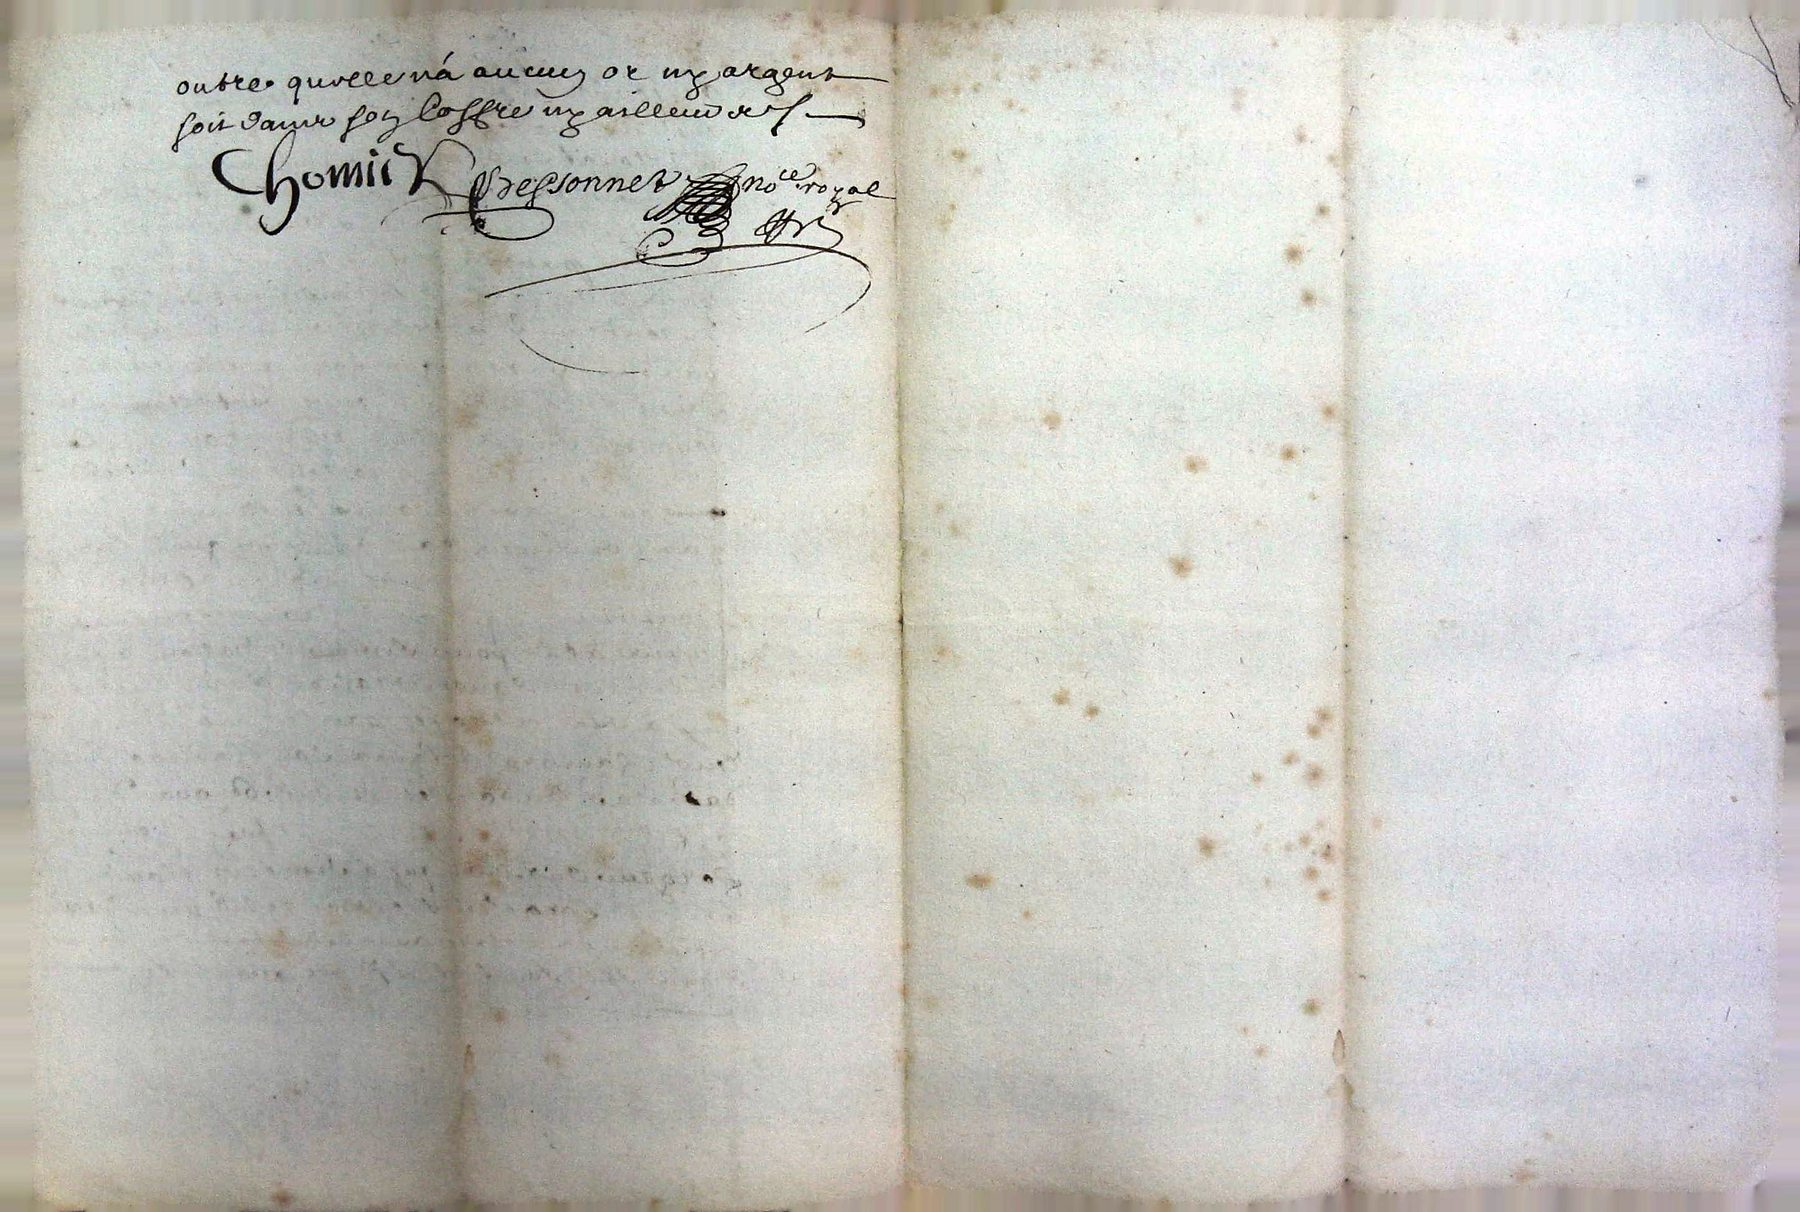 outre quelle n'a aucun or ny argent
soit dans son coffre ny ailleurs
Chomier Bessonnet no.re royal